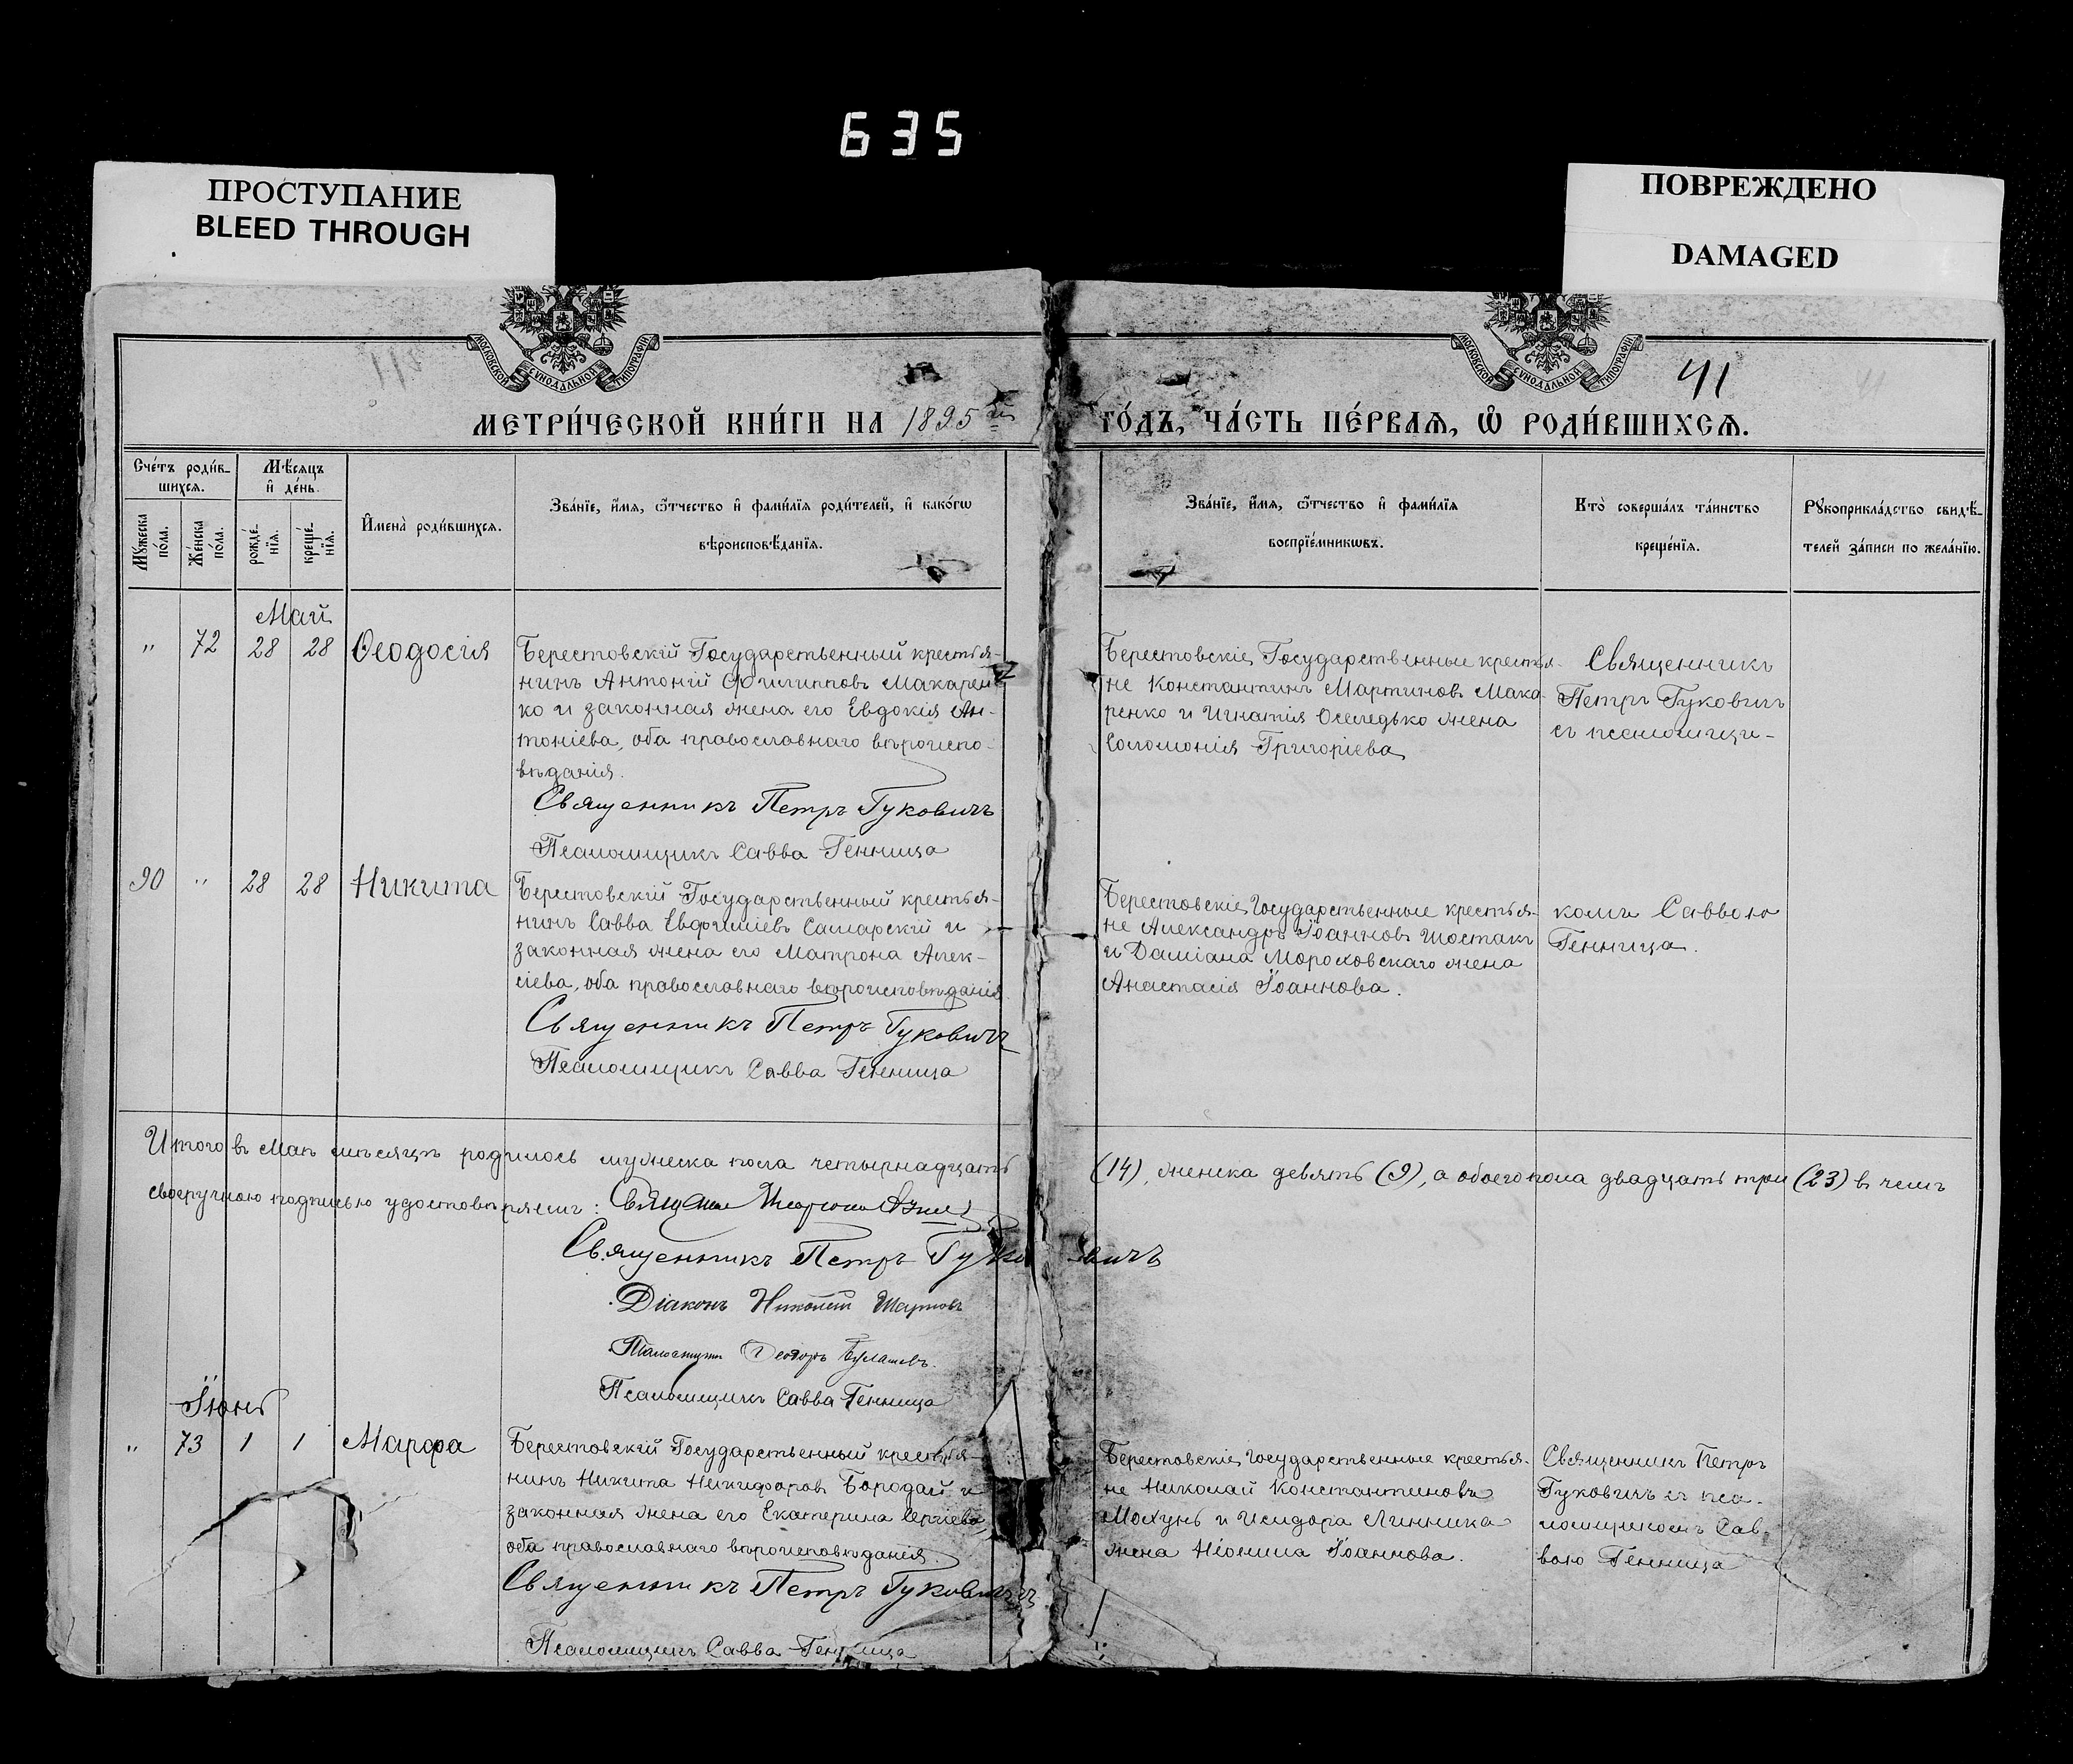 635
ПРОСТУПАНИЕ
BLEED THROUGH
ПОВРЕЖДЕНО
DAMAGED
МОСКОВСКОЙ СѴНОДАЛЬНОЙ ТИПОГРАФІИ
МОСКОВСКОЙ СѴНОДАЛЬНОЙ ТИПОГРАФІИ
41
МЕТРИ́ЧЕСКОЙ КНИ́ГИ НА 1895й
ГО́ДЪ, ЧА́СТЬ ПЕ́РВАЯ, Ѽ РОДИ́ВШИХСЯ.
Сче́тъ роди́в-
шихся.
Мѣ́сяцъ
и҆ де́нь.
Мꙋ́жеска
по́ла.
Же́нска
по́ла.
рожде́-
нїя.
креще́-
нїя.
И҆мена̀ роди́вшихся.
Зва́нїе, и҆́мя, ѻ҆́тчество и҆ фами́лїя роди́телей, и҆ како́гѡ
вѣроисповѣ́данїя.
Зва́нїе, и҆́мя, ѻ҆́тчество и҆ фами́лїя
воспрїе́мникѡвъ.
Кто̀ соверша́лъ та́инство
креще́нїя.
Рꙋкоприкла́дство свидѣ́-
телей за́писи по жела́нїю.
Май
" 72 28 28 Ѳеодосія
Берестовскій Государственный крестья-
нинъ Антоній Филипповъ Макарен-
ко и законная жена его Евдокія Ан-
тоніева, оба православнаго вѣроиспо-
вѣданія.
Священникъ Петръ Гуковичъ
Псаломщикъ Савва Генница
Берестовскіе Государственные крестья-
не Константинъ Мартиновъ Мака-
ренко и Игнатія Оселедько жена
Соломонія Григоріева
Священникъ
Петръ Гуковичъ
съ псаломщи-
90 " 28 28 Никита
Берестовскій Государственный крестья-
нинъ Савва Евфиміевъ Самарскій и
законная жена его Матрона Алек-
сіева, оба православнаго вѣроисповѣданія
Священникъ Петръ Гуковичъ
Псаломщикъ Савва Генница
Берестовскіе Государственные крестья-
не Александръ Іоанновъ Шостакъ
и Даміана Мороховскаго жена
Анастасія Іоаннова.
комъ Саввою
Генница.
Итого въ Маѣ мѣсяцѣ родилось мужеска пола четырнадцать (14), женска девять (9), а обоего пола двадцать три (23) въ чемъ
своеручною подписью удостовѣряемъ:
Священникъ Петръ Гуковичъ
Діаконъ Николай
Псаломщикъ Ѳеодоръ
Псаломщикъ Савва Генница
Іюнь
" 73 1 1 Марѳа
Берестовскій Государственный крестья-
нинъ Никита Никифоровъ Бородай и
законная жена его Екатерина Сергіева,
оба православнаго вѣроисповѣданія.
Священникъ Петръ Гуковичъ
Псаломщикъ Савва Генница
Берестовскіе Государственные крестья-
не Николай Константиновъ
Мохунь и Исидора Линника
жена Неонила Іоаннова.
Священникъ Петръ
Гуковичъ съ пса-
ломщикомъ Сав-
вою Генница